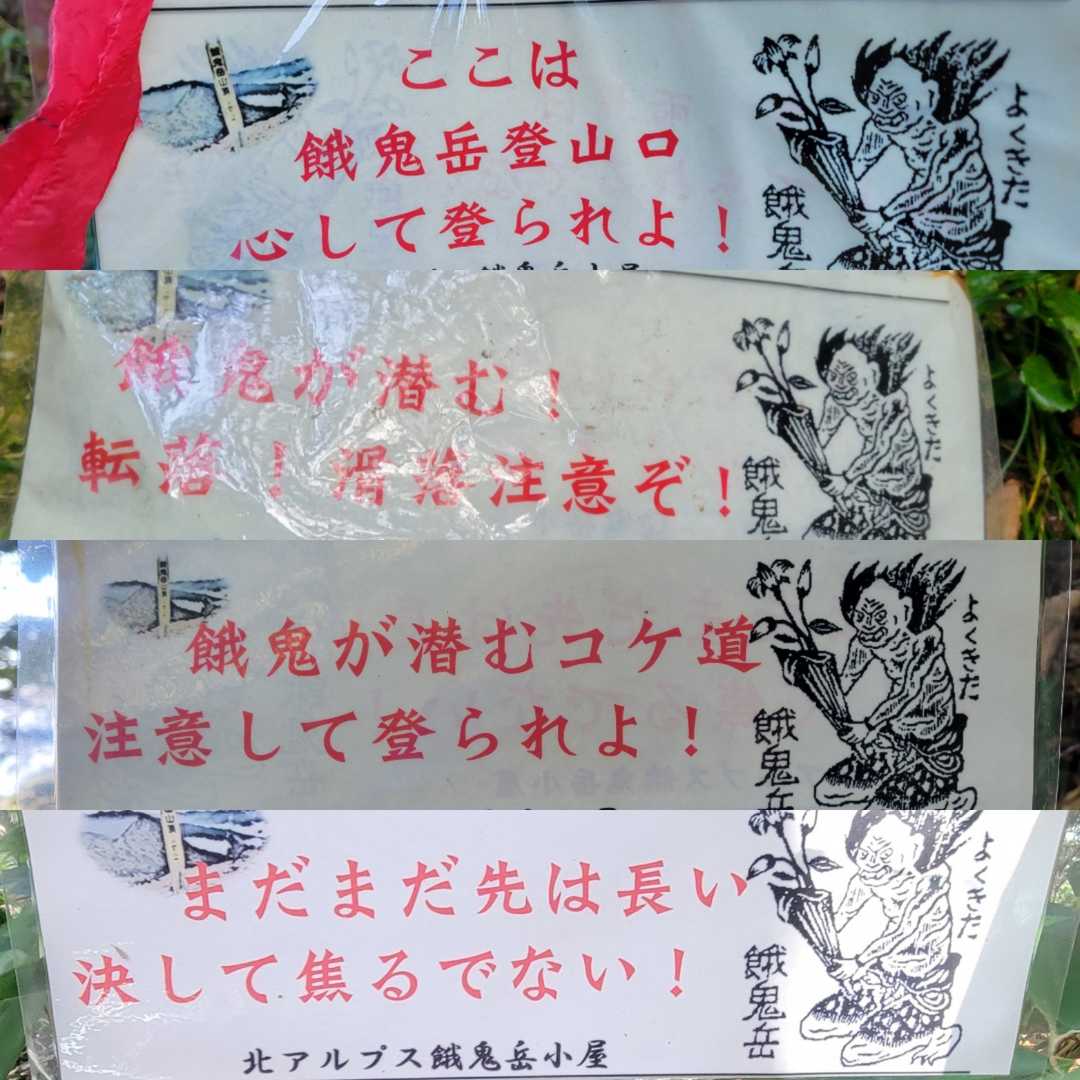 ここは
餓鬼岳登山口
心して登られよ！
餓鬼岳小屋
よくきた
餓鬼
餓鬼が潜む！
転落！滑落注意ぞ！
よくきた
餓鬼
餓鬼が潜むコケ道
注意して登られよ！
よくきた
餓鬼岳
まだまだ先は長い
決して焦るでない！
北アルプス餓鬼岳小屋
よくきた
餓鬼岳